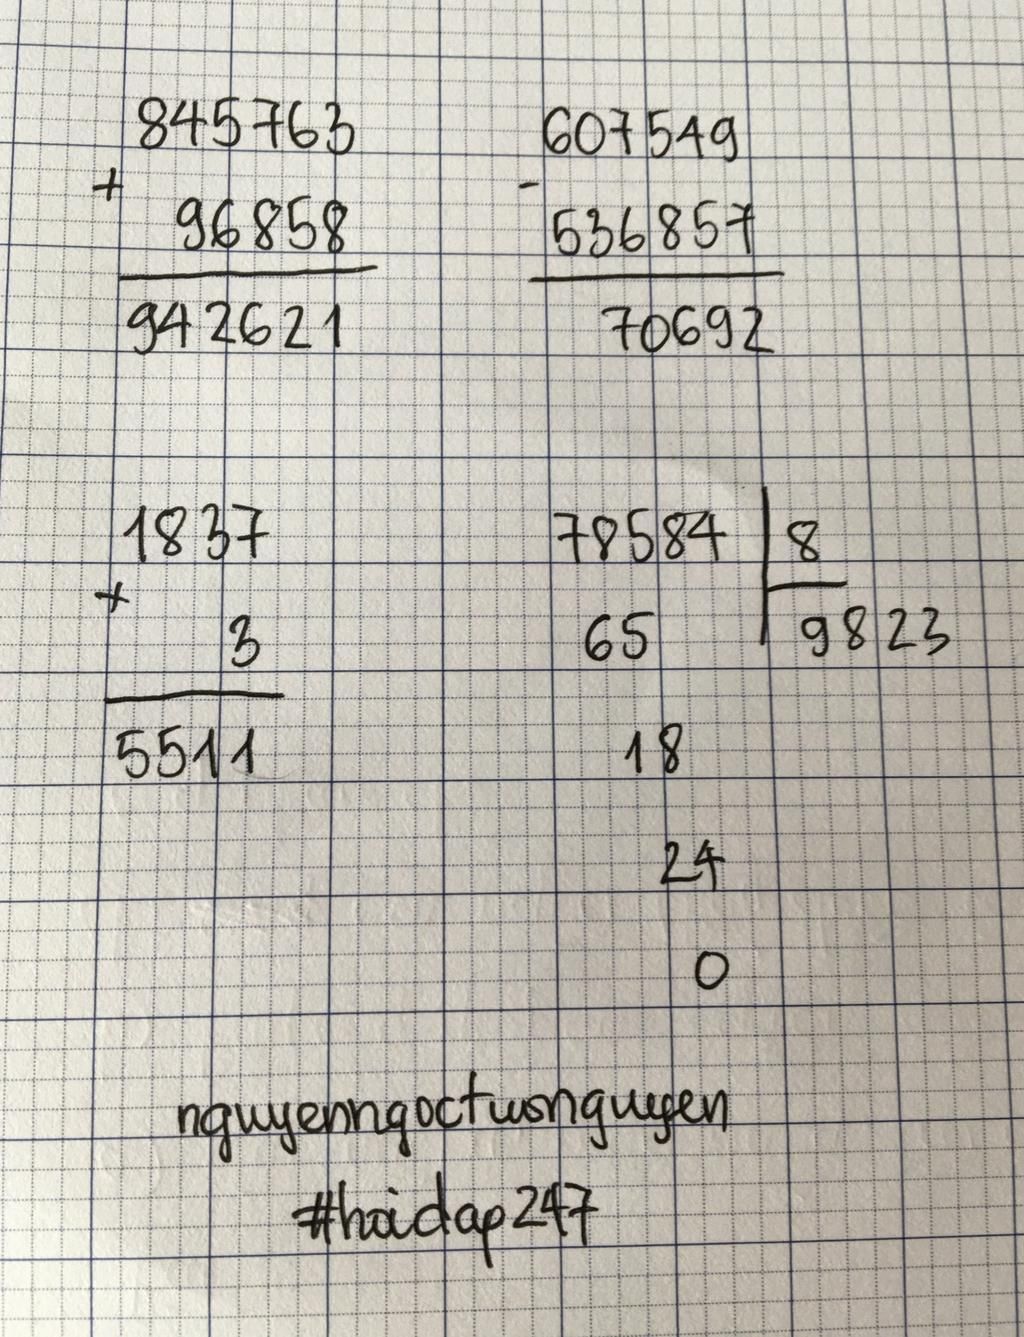 845763
+
96858
942621
607549
-
536857
70692
1837
×
3
5511
78584 8
65 9823
18
24
0
nguyenngoctusnguyen
#hoidap247